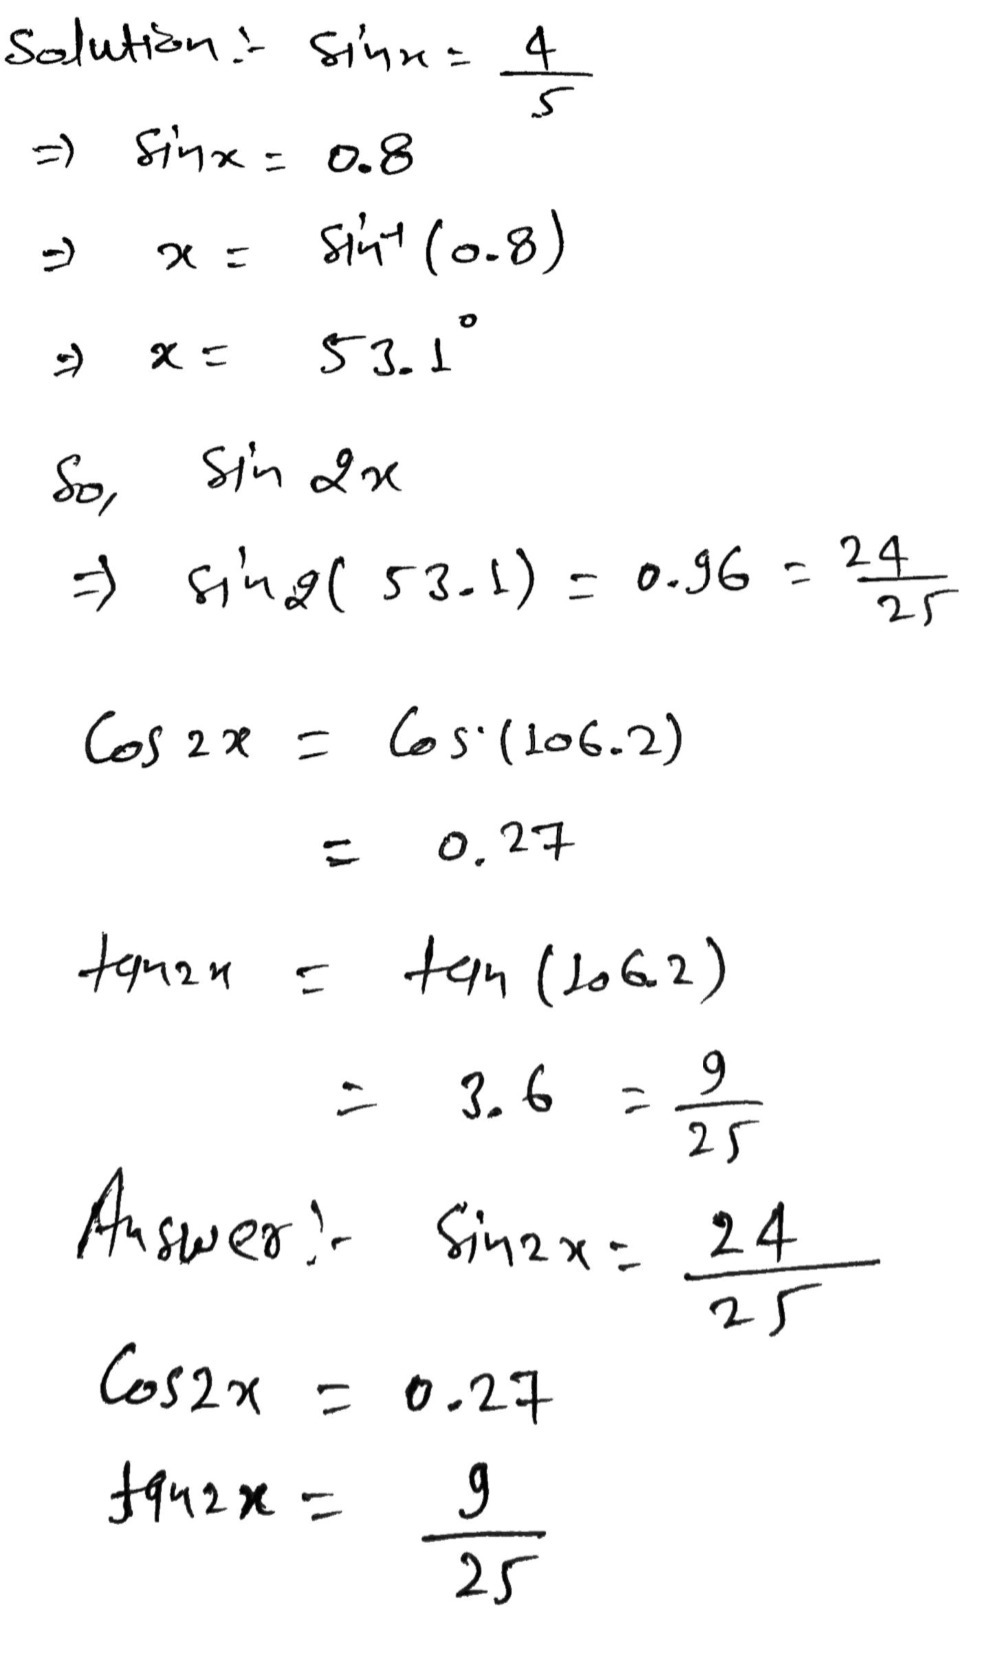 Solution:- Sinx = 4/5
=> Sinx = 0.8
=> x = Sin⁻¹ (0.8)
=> x = 53.1°
So, Sin 2x
=> Sin 2( 53.1) = 0.96 = 24/25
Cos 2x = Cos (106.2)
= 0.27
tan2x = tan (106.2)
= 3.6 = 9/25
Answer:- Sin2x = 24/25
Cos2x = 0.27
tan2x = 9/25